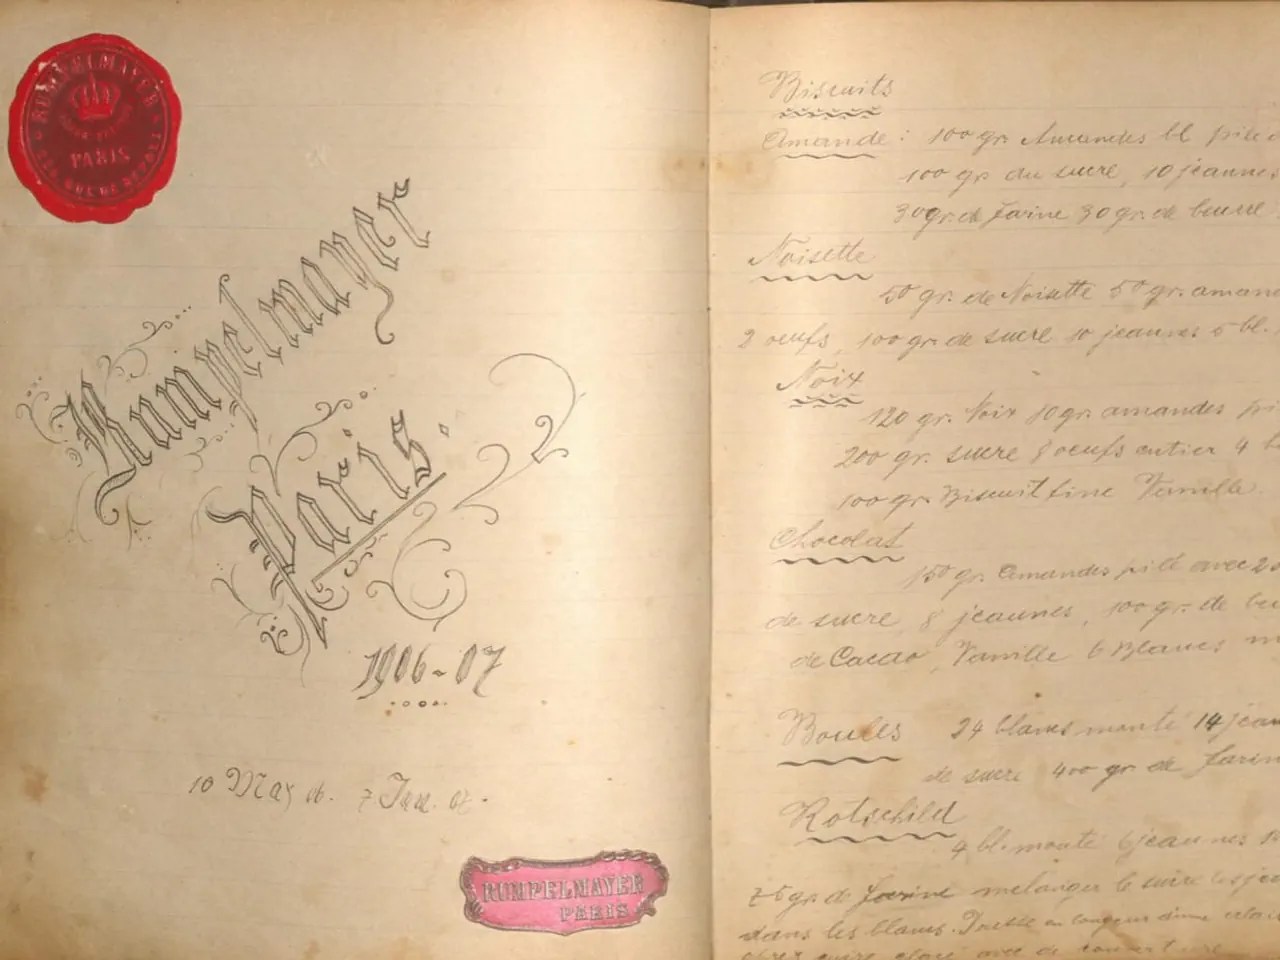 RUMPELMAYER
PARIS
Rumpelmayer
Paris.
1906-07
10 May 06. 7 07.
RUMPELMAYER
PARIS
Biscuits
Amande: 100 gr. Amandes bl pile
100 gr du sucre, 10 jeaunes
30 gr. de farine 30 gr. de beurre
Noisette
50 gr. de Noisette 50 gr. aman
2 oeufs, 100 gr. de sucre 10 jeaunes 5 bl.
Noix
120 gr. Noix 10 gr. amandes
200 gr. sucre 8 oeufs entier 4 b
100 gr. Biscuit fine Vanille.
Chocolat
150 gr. Amandes pilé avec 2
de sucre, 8 jeaunes, 100 gr. de be
de Cacao, Vanille 6 Blancs m
Boules 24 blancs monté 14 jeau
de sucre 400 gr de farin
Rotschild
4 bl. monté 6 jeaunes 1
75 gr. de farine melanger le sucre les jea
dans les blancs. Dresse en longueur d'une
sucre glacé avec de couverture